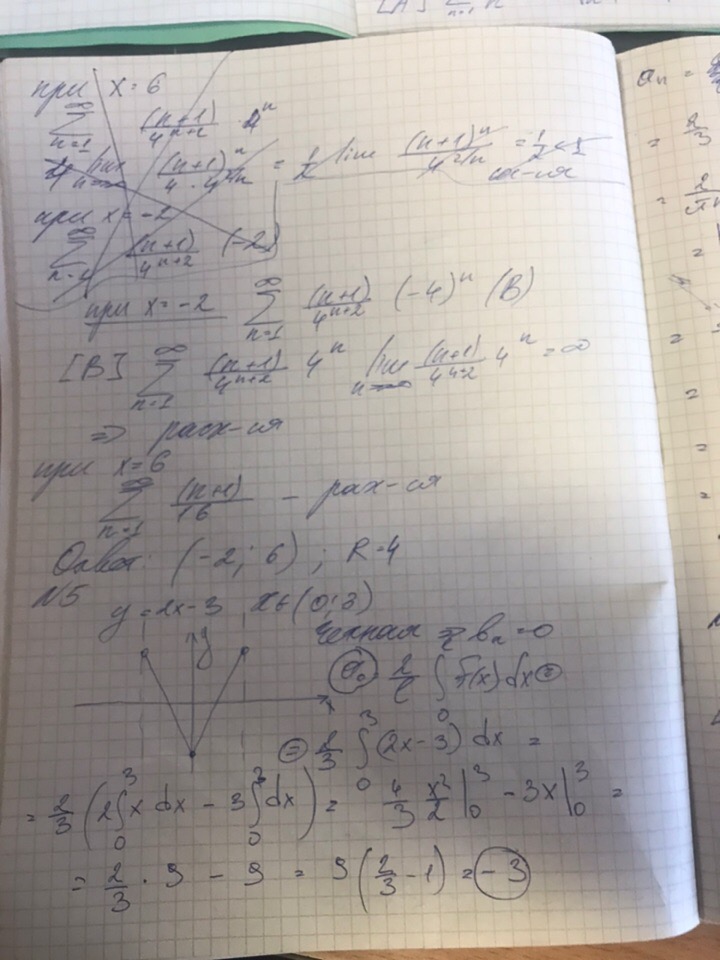 при x = 6
∑_{n=1}^{∞} (n+1)/4^{n+2} · 4^n
lim_{n→∞} (n+1)^n/(4 · 4^{2/n}) = 1/2 lim (n+1)^n/4^{2/n} = 1/2 < 1
сх-ся
при x = -2
∑_{n=1}^{∞} (n+1)/4^{n+2} (-2)
при x = -2 ∑_{n=1}^{∞} (n+1)/4^{n+2} (-4)^n (B)
[B] ∑_{n=1}^{∞} (n+1)/4^{n+2} 4^n lim_{n→∞} (n+1)/4^{n+2} 4^n = ∞
=> расх-ся
при x=6
∑_{n=1}^{∞} (n+1)/16 - рах-ся
Ответ: (-2; 6) ; R=4
N5 y = 2x-3 x∈(0;3)
четная => b_n = 0
y
x
a_0 = 2/l ∫ f(x) dx =
= 2/3 ∫_0^3 (2x-3) dx =
= 2/3 (2∫_0^3 x dx - 3∫_0^3 dx) = 4/3 x²/2 |_0^3 - 3x |_0^3 =
= 2/3 · 9 - 9 = 9(2/3 - 1) = -3
a_n =
= 2/3
= 2/πn
=
=
=
=
=
=